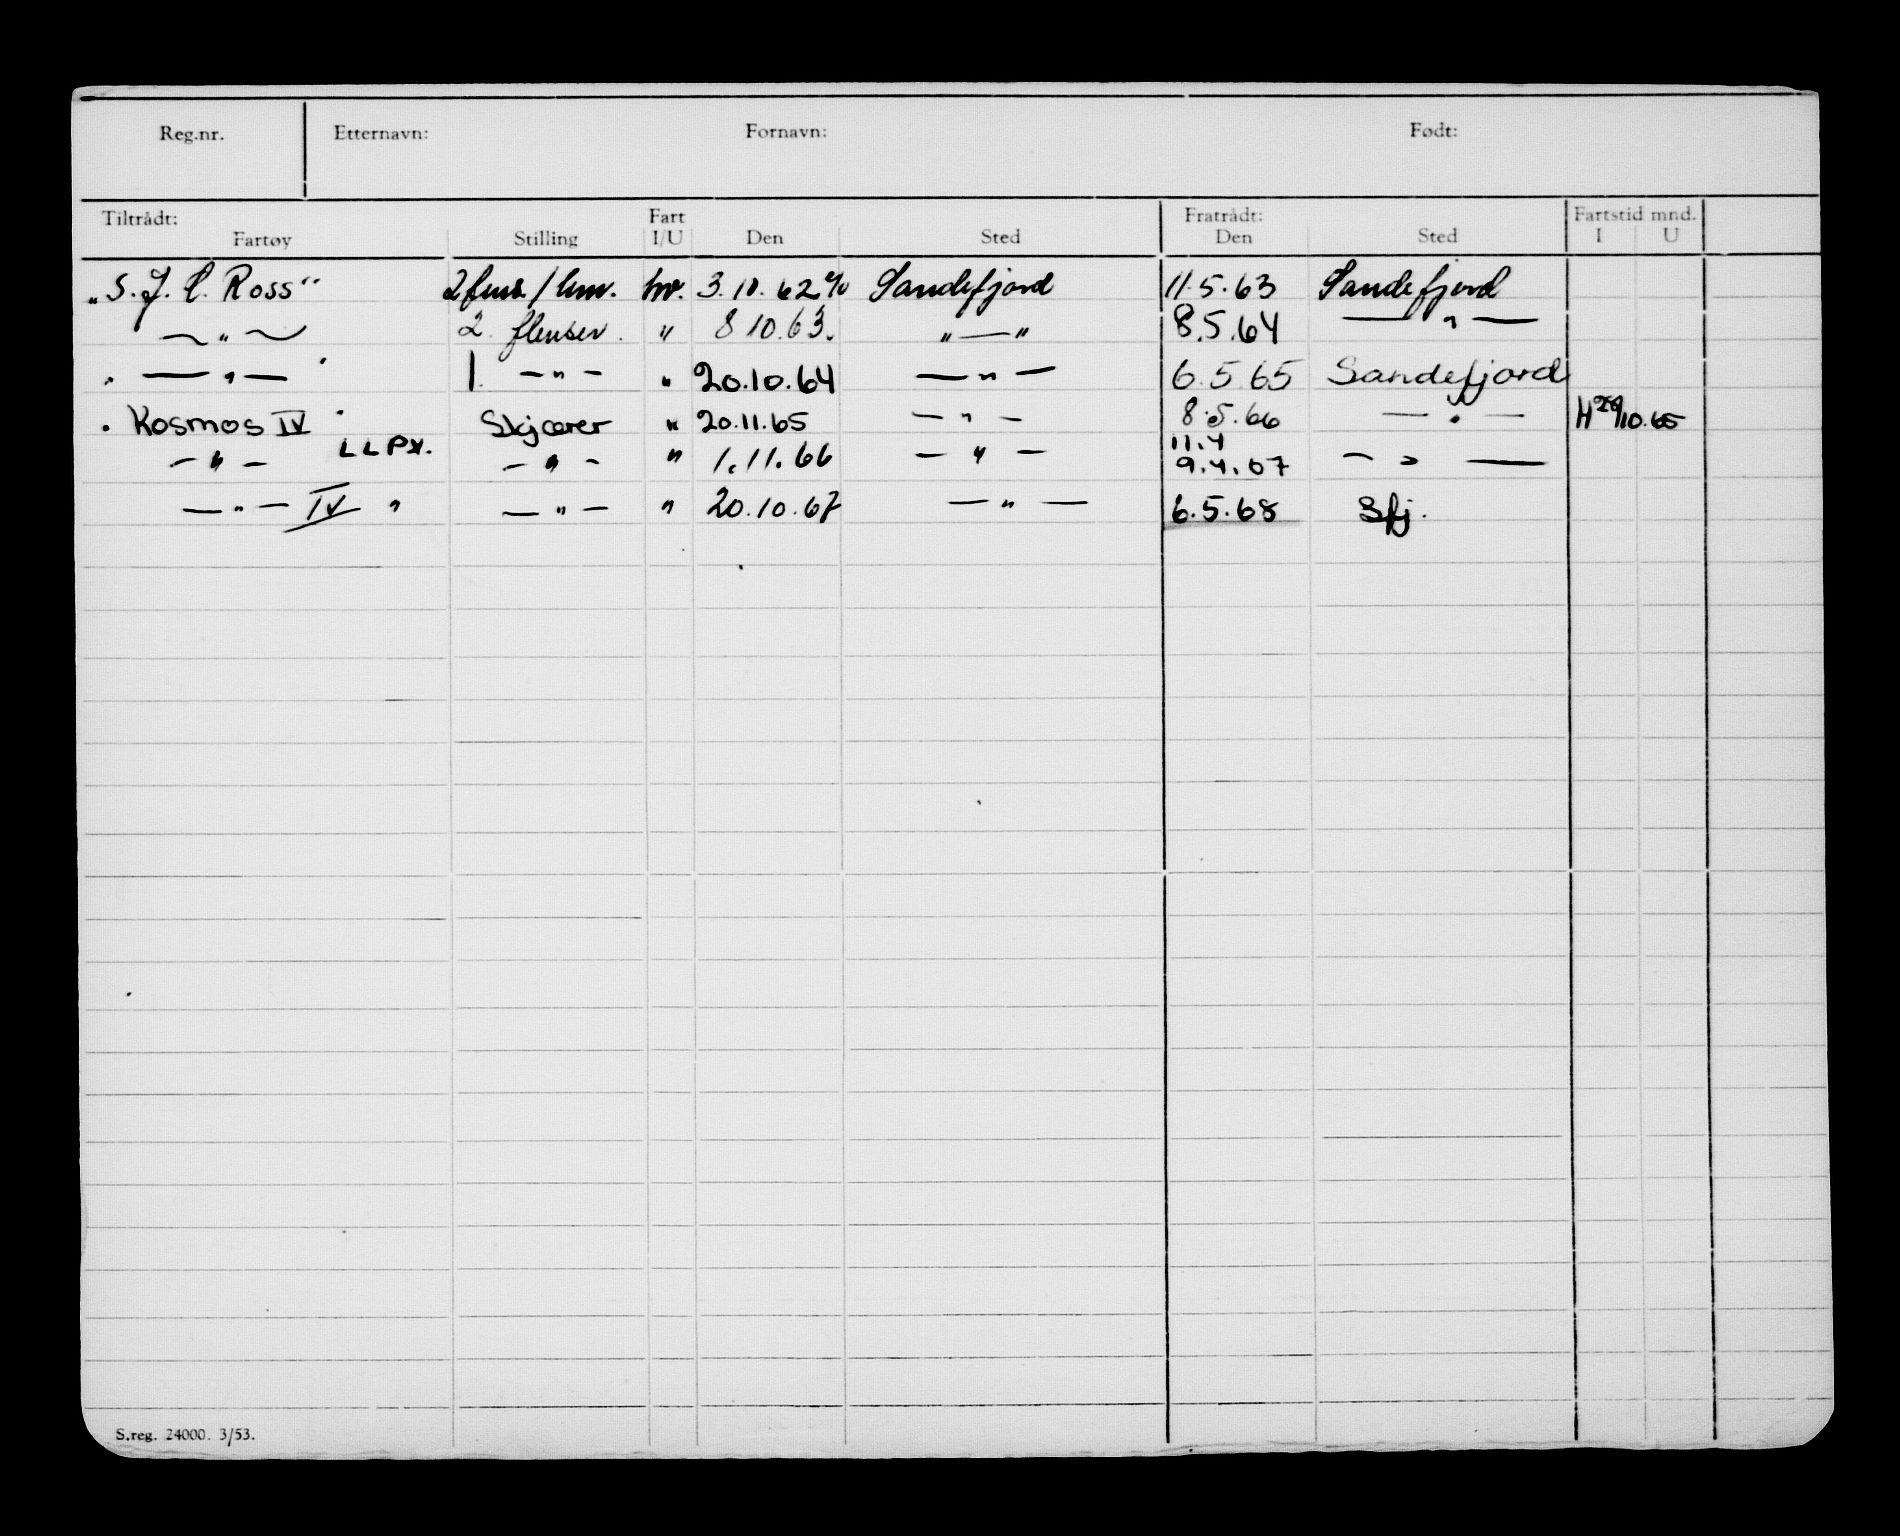 Reg.nr. Etternavn: Fornavn: Født:
Tiltrådt: Fart Fratrådt: Fartstid mnd.
Fartøy Stilling I/U Den Sted Den Sted I U
"S. J. C. Ross" 3.10.62 Sandefjord 11.5.63 Sandefjord
— " — 2. flenser. " 8 10.63. " — " 8.5.64 — " —
" — " — " 1. — " — " 20.10.64 — " — 6.5.65 Sandefjord
" Kosmos IV " Skjærer " 20.11.65 — " — 8.5.66 — " — 10.65
LLPX. 11.4
— " — — " — " 1.11.66 — " — 9.4.67 — " —
— " — IV " — " — " 20.10.67 — " — 6.5.68 Sfj.
S.reg. 24000. 3/53.